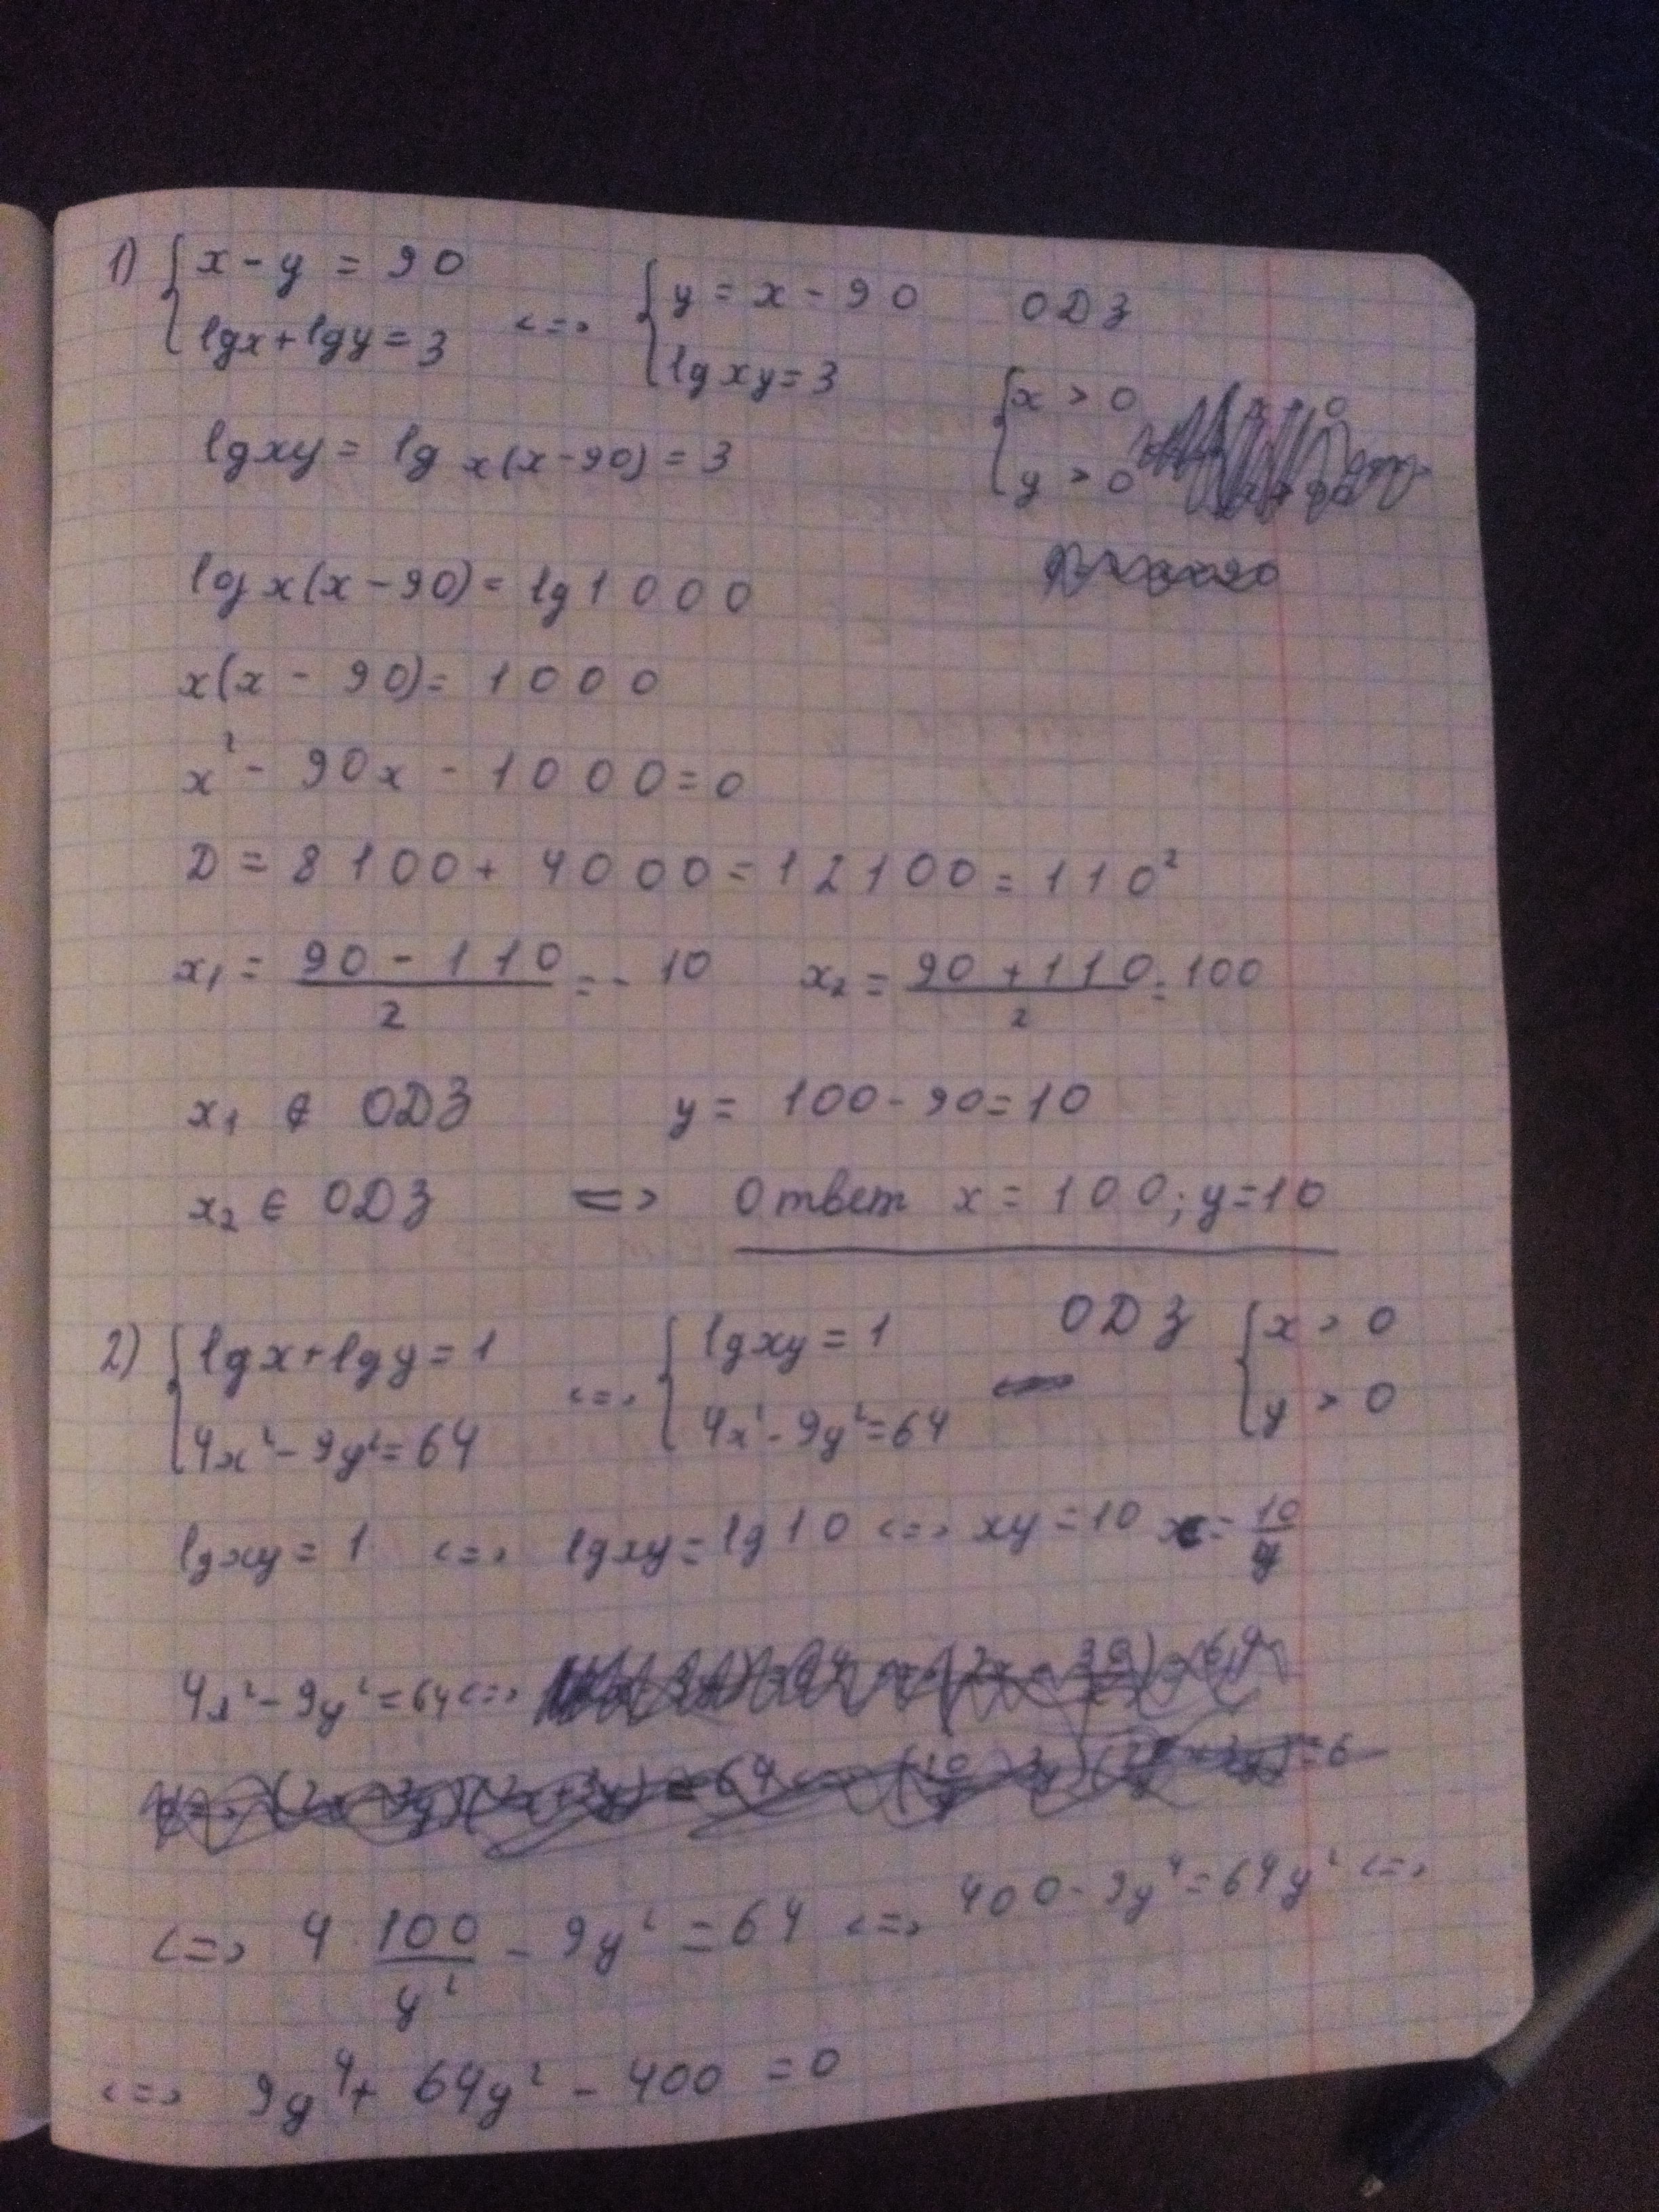 1) { x - y = 90
lgx + lgy = 3 <=> { y = x - 90
lg xy = 3
ОДЗ
{ x > 0
y > 0
lgxy = lg x(x-90) = 3
log x(x-90) = lg 1000
x(x - 90) = 1000
x² - 90x - 1000 = 0
D = 8100 + 4000 = 12100 = 110²
x₁ = (90 - 110)/2 = -10 x₂ = (90 + 110)/2 = 100
x₁ ∉ ОДЗ y = 100 - 90 = 10
x₂ ∈ ОДЗ => Ответ x = 100; y = 10
2) { lgx + lgy = 1
4x² - 9y² = 64 <=> { lgxy = 1
4x² - 9y² = 64
ОДЗ { x > 0
y > 0
lgxy = 1 <=> lgxy = lg10 <=> xy = 10 x = 10/y
4x² - 9y² = 64 <=>
<=> 4 · 100/y² - 9y² = 64 <=> 400 - 9y⁴ = 64y² <=>
<=> 9y⁴ + 64y² - 400 = 0